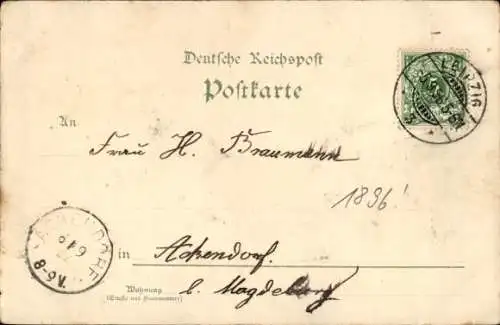 Deutsche Reichspost
Postkarte
LEIPZIG
An
Frau H. Braumann
1896!
in Ackendorf.
V.6-8
Wohnung
(Straße und Hausnummer)
b. Magdeburg